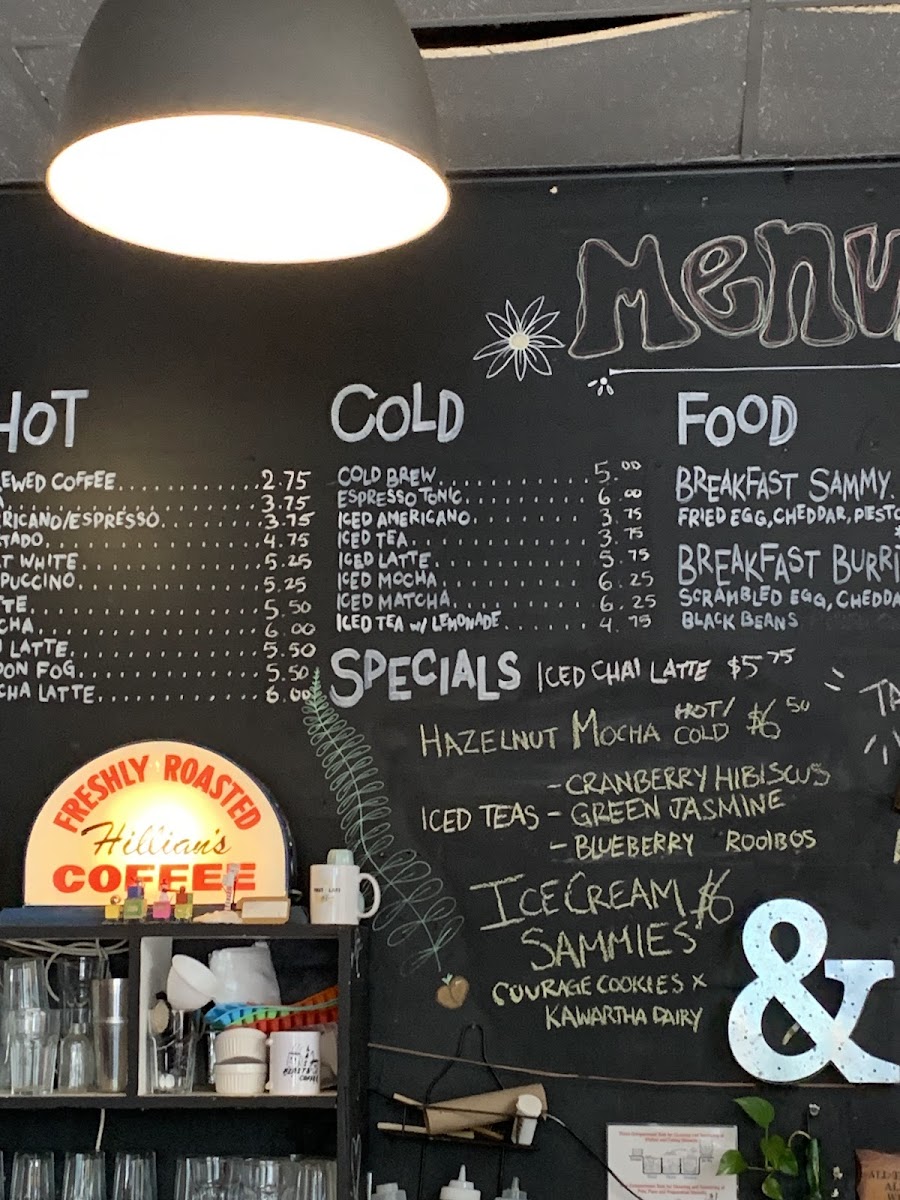 Menu
HOT
EWED COFFEE 2.75
3.75
RICANO/ESPRESSO 3.75
TADO 4.75
T WHITE 5.25
PUCCINO 5.25
TE 5.50
CHA 6.00
LATTE 5.50
DON FOG 5.50
CHA LATTE 6.00
COLD
COLD BREW 5.00
ESPRESSO TONIC 6.00
ICED AMERICANO 3.75
ICED TEA 3.75
ICED LATTE 5.75
ICED MOCHA 6.25
ICED MATCHA 6.25
ICED TEA W/ LEMONADE 4.75
FOOD
BREAKFAST SAMMY
FRIED EGG, CHEDDAR, PESTO
BREAKFAST BURRI
SCRAMBLED EGG, CHEDDA
BLACK BEANS
SPECIALS ICED CHAI LATTE $5.75
HAZELNUT MOCHA HOT/COLD $6.50
ICED TEAS
- CRANBERRY HIBISCUS
- GREEN JASMINE
- BLUEBERRY ROOIBOS
ICE CREAM $6
SAMMIES
COURAGE COOKIES X
KAWARTHA DAIRY
TA
FRESHLY ROASTED
Hillian's
COFFEE
&